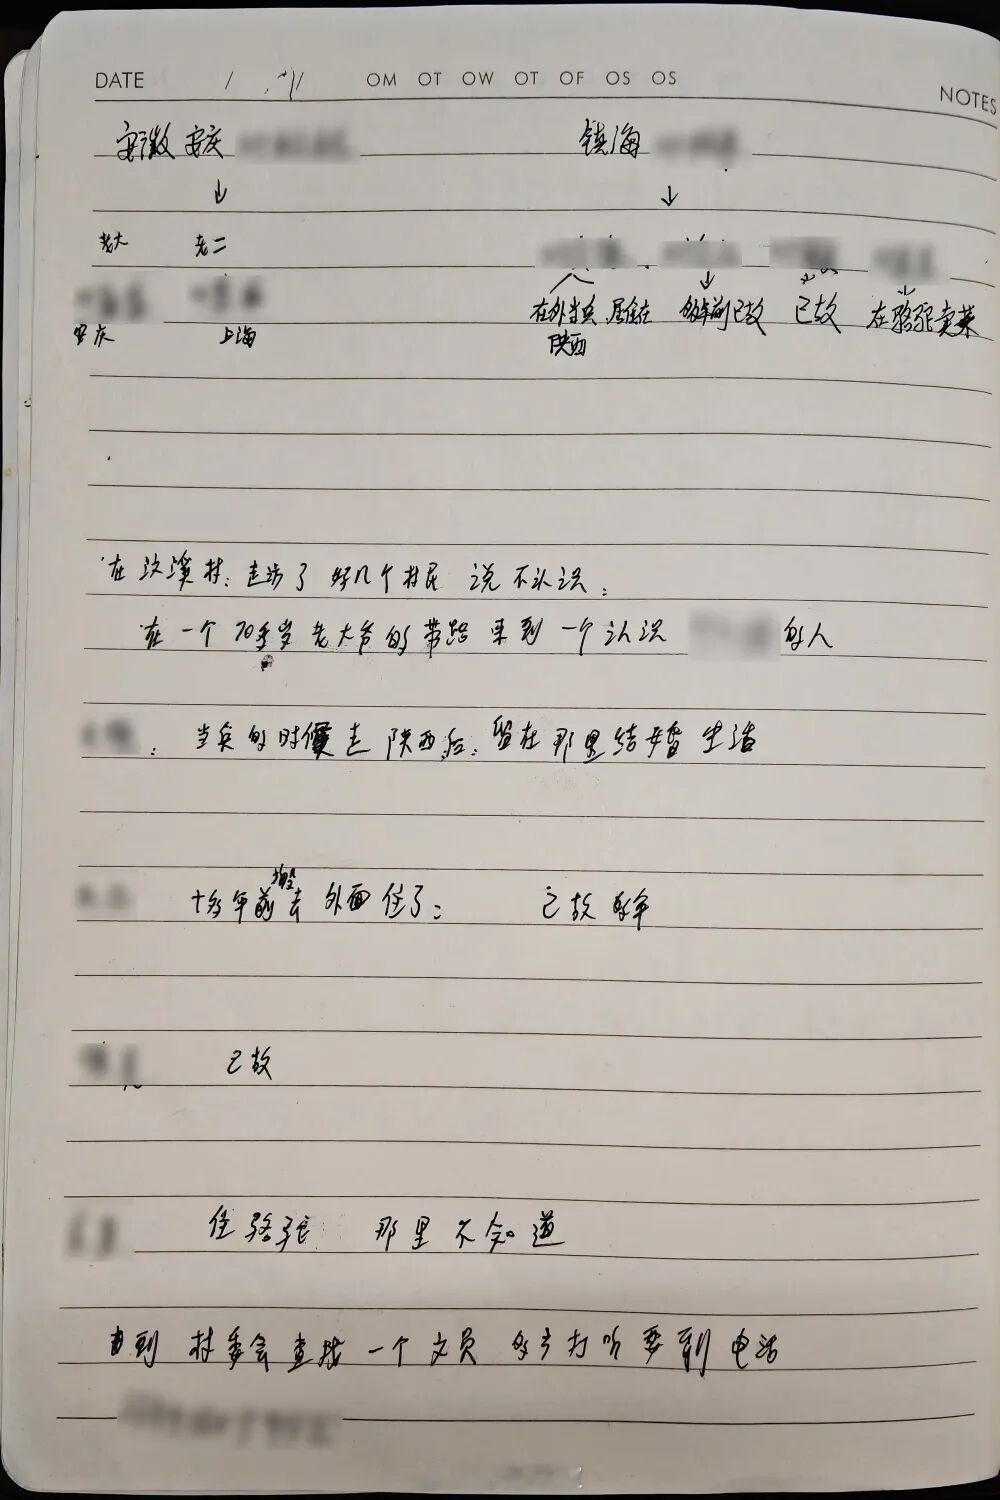 DATE / / OM OT OW OT OF OS OS
NOTES
安徽 安庆 镇海
↓ ↓
老大 老二
在外当兵 居住在 多年前已故 已故 在骆驼卖菜
安庆 上海 陕西
在汶溪村: 走访了 好几个村民 说不认识:
在一个70多岁老大爷的带路来到一个认识 的人
: 当兵的时候走陕西后: 留在那里结婚生活
搬
十多年前去外面住了: 已故多年
已故
住骆驼 那里不知道
到村委会查找一个文员 多方打听要到电话